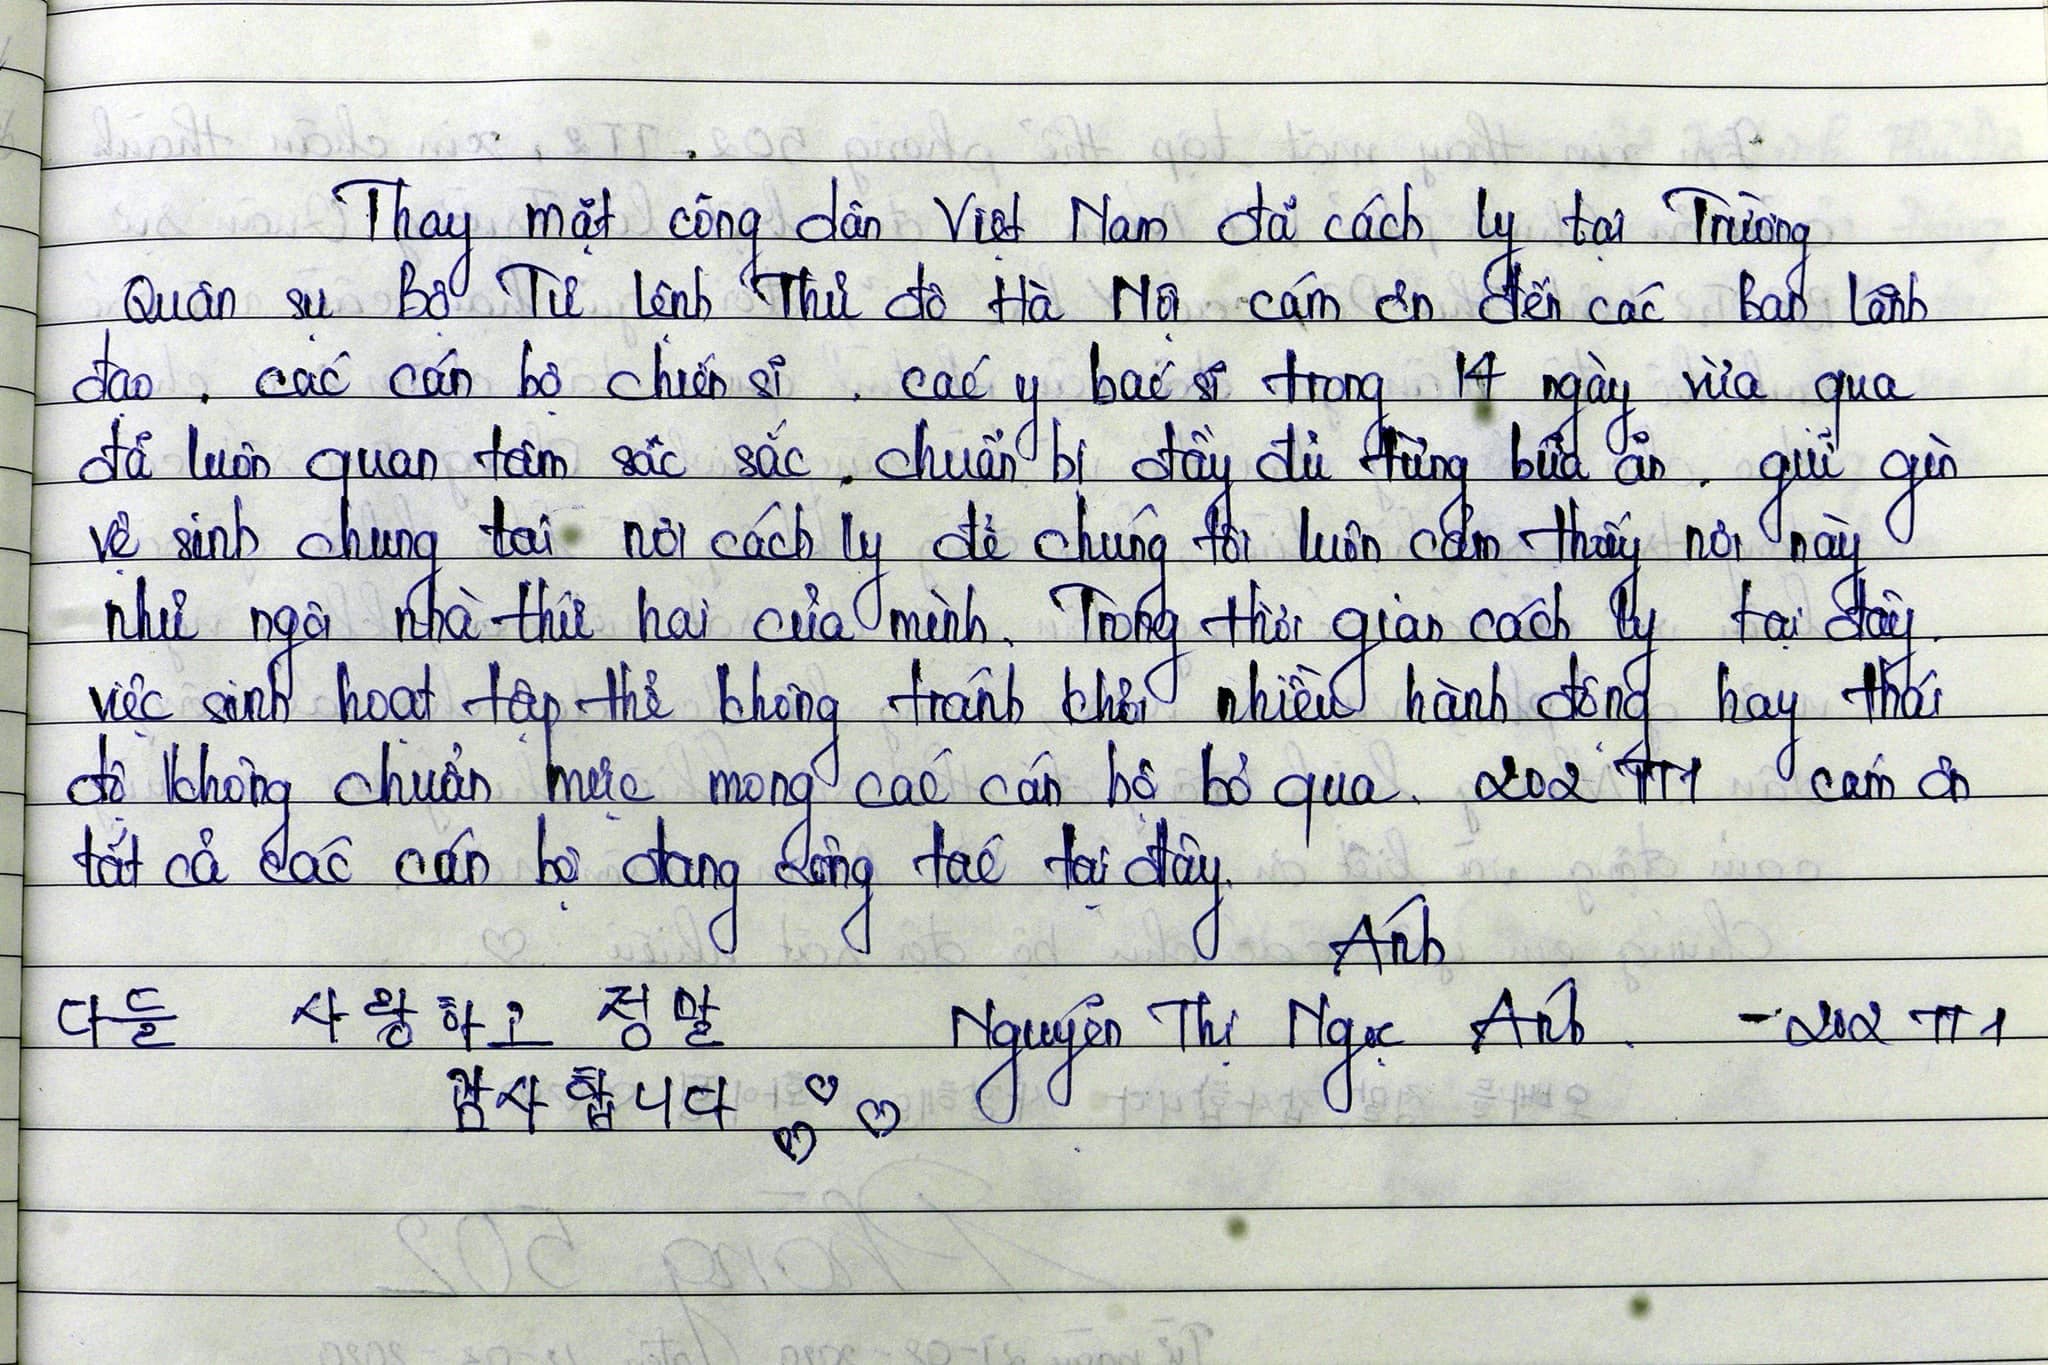 Thay mặt công dân Việt Nam đã cách ly tại Trường
Quân sự Bộ Tư lệnh Thủ đô Hà Nội cám ơn đến các Ban lãnh
đạo, các cán bộ chiến sĩ, các y bác sĩ trong 14 ngày vừa qua
đã luôn quan tâm sâu sắc, chuẩn bị đầy đủ từng bữa ăn, giữ gìn
vệ sinh chung tại nơi cách ly để chúng tôi luôn cảm thấy nơi này
như ngôi nhà thứ hai của mình. Trong thời gian cách ly tại đây,
việc sinh hoạt tập thể không tránh khỏi nhiều hành động hay thái
độ không chuẩn mực mong các cán bộ bỏ qua. 202 TT1 cám ơn
tất cả các cán bộ đang công tác tại đây.
Ánh
다들 사랑하고 정말 Nguyễn Thị Ngọc Ánh. - 202 TT1
감사합니다 ♡ ♡ ♡